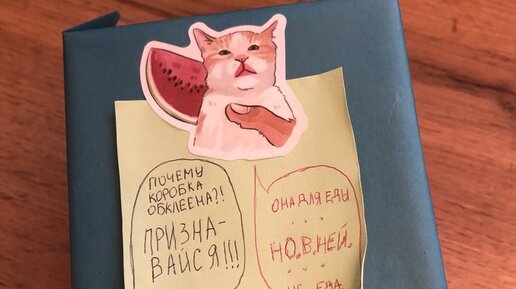 ПОЧЕМУ
КОРОБКА
ОБКЛЕЕНА?!
ПРИЗНА-
ВАЙСЯ!!!
ОНА ДЛЯ ЕДЫ
. . .
НО.В.НЕЙ.
. . .
НЕ ЕДА